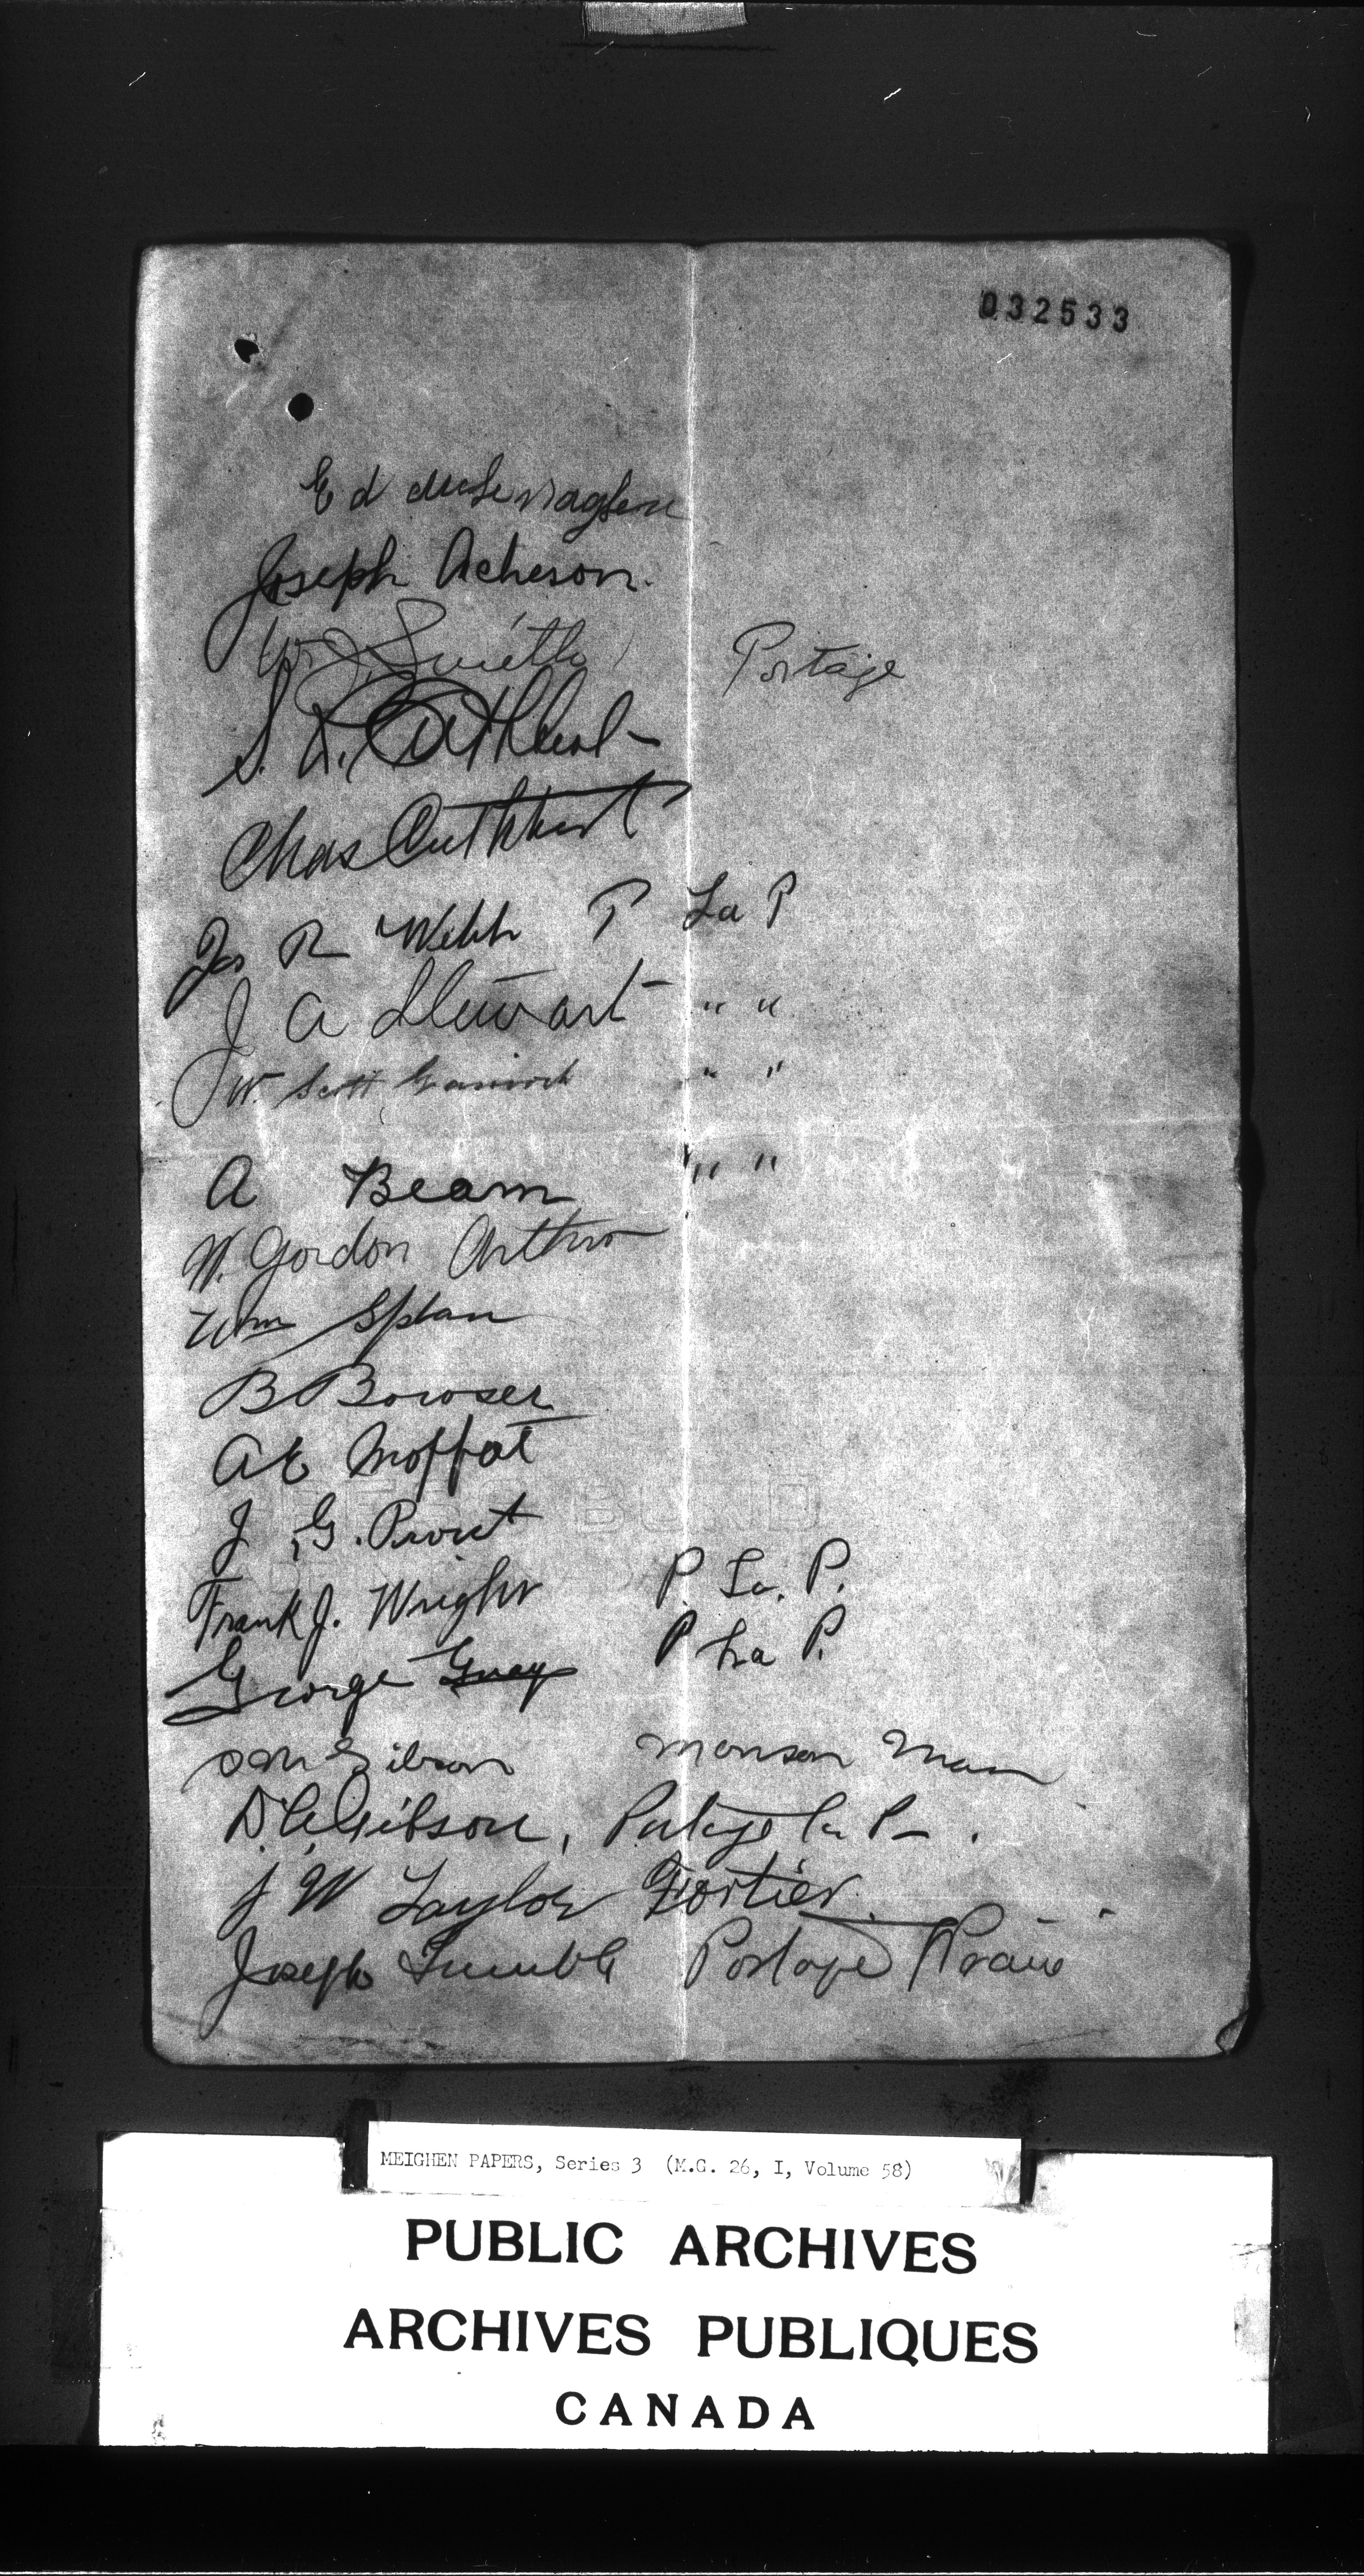 032533
Ed
Joseph Acheson.
Wm J Smith Portage
S. R. Cuthbert
Chas Cuthbert
Jas R Webb P La P
J A Stewart " "
W. Scott " "
A Beam " "
W. Gordon Arthur
Wm Splan
B Bowser
A E Moffat
J. G. Prout
Frank J. Wright P. La. P.
George Guay P La P.
Gibson Man
D. C. Gibson, Portage la P.
J W Taylor Fortier.
Joseph Trimble Portage Prairie
BOND
MEIGHEN PAPERS, Series 3 (M.G. 26, I, Volume 58)
PUBLIC ARCHIVES
ARCHIVES PUBLIQUES
CANADA